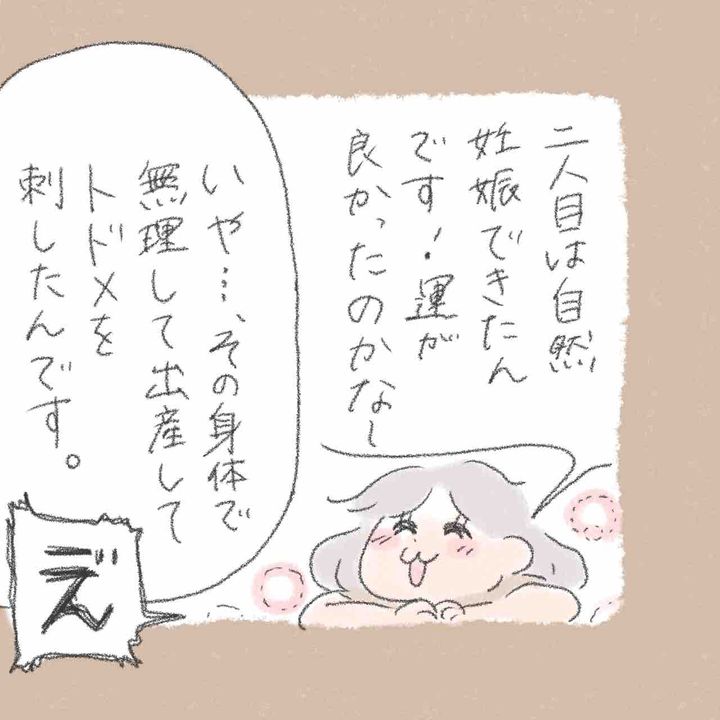 二人目は自然
妊娠できたん
です!運が
良かったのかなー
いや…、その身体で
無理して出産して
トドメを
刺したんです。
え゛